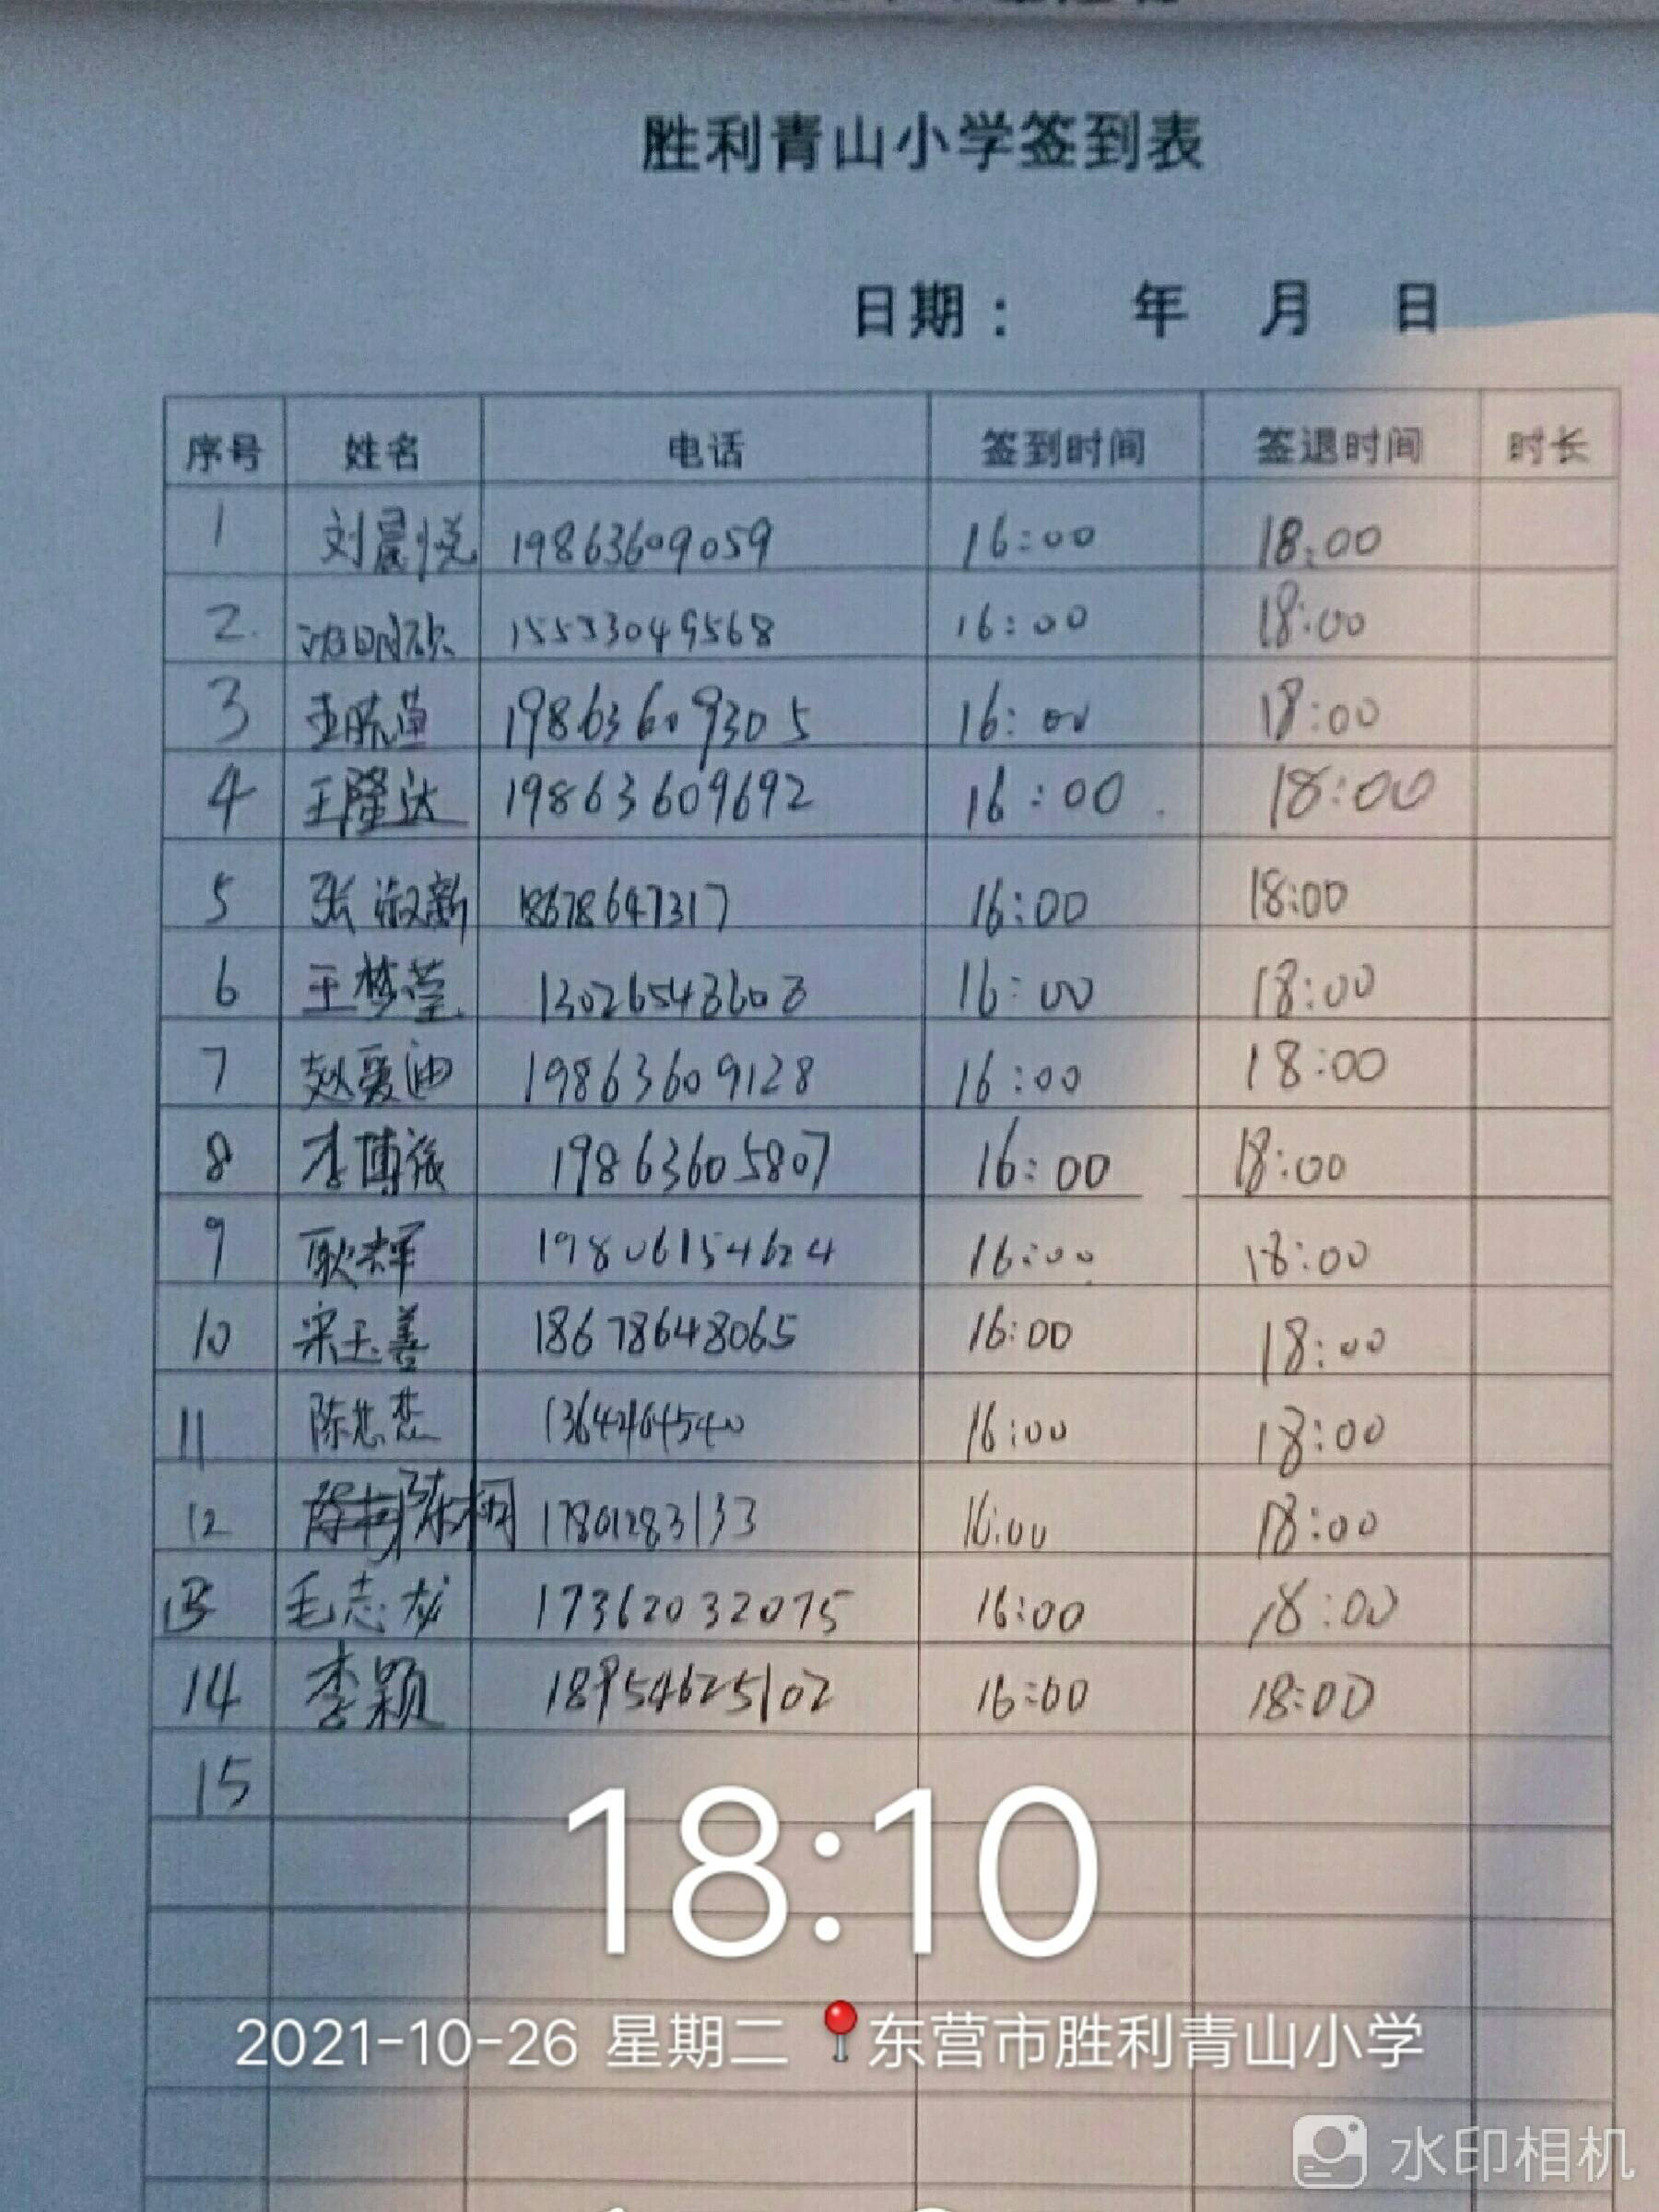 胜利青山小学签到表
日期： 年 月 日
序号 姓名 电话 签到时间 签退时间 时长
1 刘晨悦 19863609059 16:00 18:00
2. 15533049568 16:00 18:00
3 19863609305 16:00 18:00
4 王隆达 19863609692 16:00 18:00
5 张淑新 18678647317 16:00 18:00
6 王梦莹 13026543603 16:00 18:00
7 赵爱迪 19863609128 16:00 18:00
8 李博 19863605807 16:00 18:00
9 耿辉 19806154624 16:00 18:00
10 宋玉善 18678648065 16:00 18:00
11 陈 16:00 18:00
12 陈桐 17801283133 16:00 18:00
13 毛志龙 17362032075 16:00 18:00
14 李颖 18954625102 16:00 18:00
15
18:10
2021-10-26 星期二 东营市胜利青山小学
水印相机